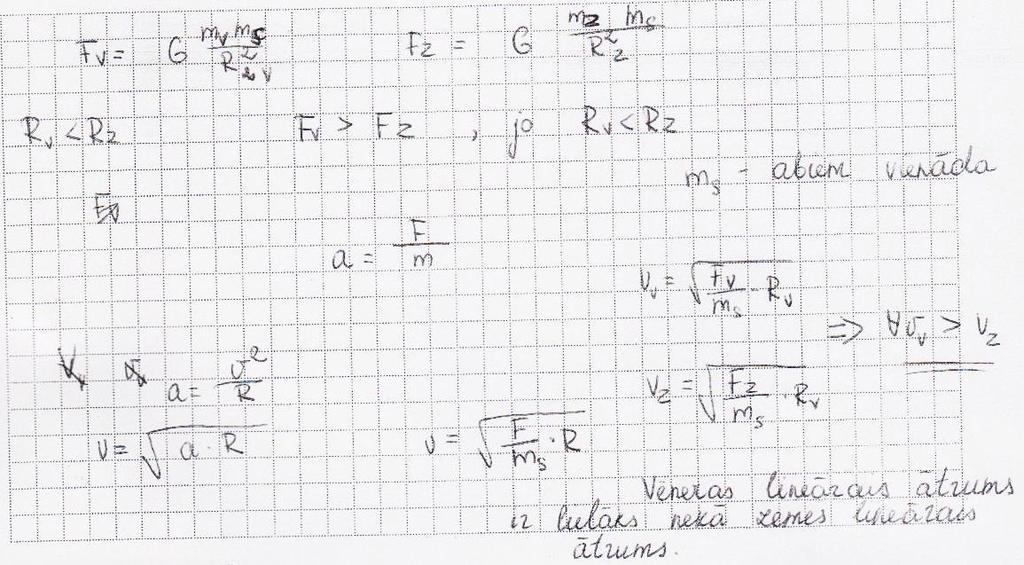 F_v = G m_v m_s / R²_v F_z = G m_z m_s / R²_z
R_v < R_z F_v > F_z , jo R_v < R_z
m_s - abiem vienāda
a = F / m
v_v = √(F_v / m_s · R_v)
⇒ v_v > v_z
a = v² / R
v_z = √(F_z / m_s · R_v)
v = √(a · R) v = √(F / m_s · R)
Veneras lineārais ātrums
ir lielāks nekā zemes lineārais
ātrums.